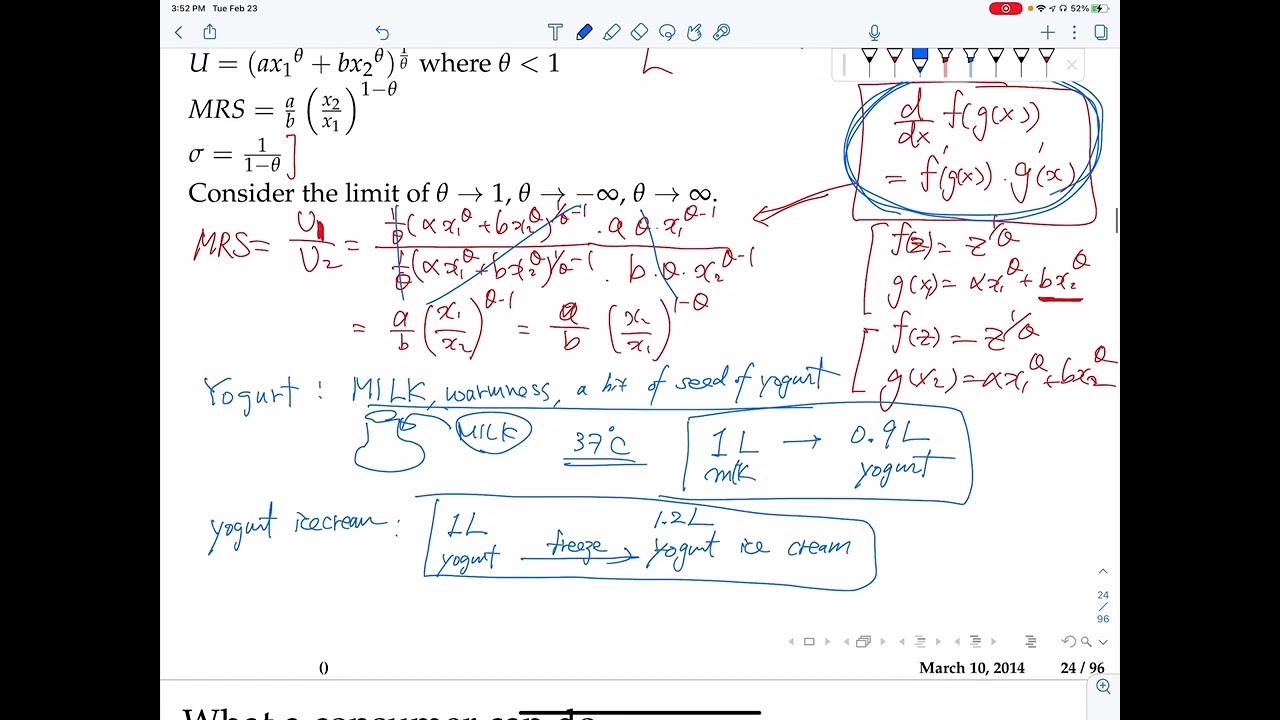 3:52 PM Tue Feb 23
52%
U = (ax₁^θ + bx₂^θ)^(1/θ) where θ < 1
MRS = a/b (x₂/x₁)^(1−θ)
σ = 1/(1−θ) ]
Consider the limit of θ → 1, θ → −∞, θ → ∞.
d/dx f(g(x))
= f'(g(x)) · g'(x)
MRS = U₁/U₂ = (1/θ (αx₁^θ + bx₂^θ)^(1/θ−1) · a θ · x₁^(θ−1)) / (1/θ (αx₁^θ + bx₂^θ)^(1/θ−1) · b · θ · x₂^(θ−1))
= a/b (x₁/x₂)^(θ−1) = a/b (x₂/x₁)^(1−θ)
f(z) = z^(1/θ)
g(x₁) = αx₁^θ + bx₂^θ
f(z) = z^(1/θ)
g(x₂) = αx₁^θ + bx₂^θ
Yogurt : MILK, warmness, a bit of seed of yogurt
MILK 37°C 1L → 0.9L
milk yogurt
yogurt icecream : 1L 1.2L
yogurt freeze → yogurt ice cream
24
/
96
() March 10, 2014 24 / 96
What a consumer can do